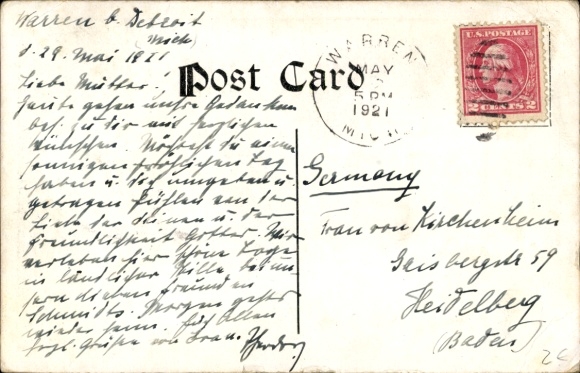 Warren b. Detroit
(Mich)
d. 29. Mai 1921
Liebe Mutter!
Post Card
Heute gehen unsre Gedanken
bes. zu dir mit herzlichen
Wünschen. Mögest du einen
sonnigen fröhlichen Tag
haben u. dich umgeben u.
getragen fühlen von der
Liebe der deinen u. der
Freundlichkeit Gottes. Wir
verleben hier schöne Tage
in ländlicher Stille bei un-
sern lieben Freunden
Schmidts. Morgen gehts
wieder heim. Euch allen
herzl. Grüße von
WARREN
MAY
5 PM
1921
MICH.
U.S. POSTAGE
2 CENTS 2
Germany
Frau von Kirchenheim
Gaisbergstr 59
Heidelberg
(Baden)